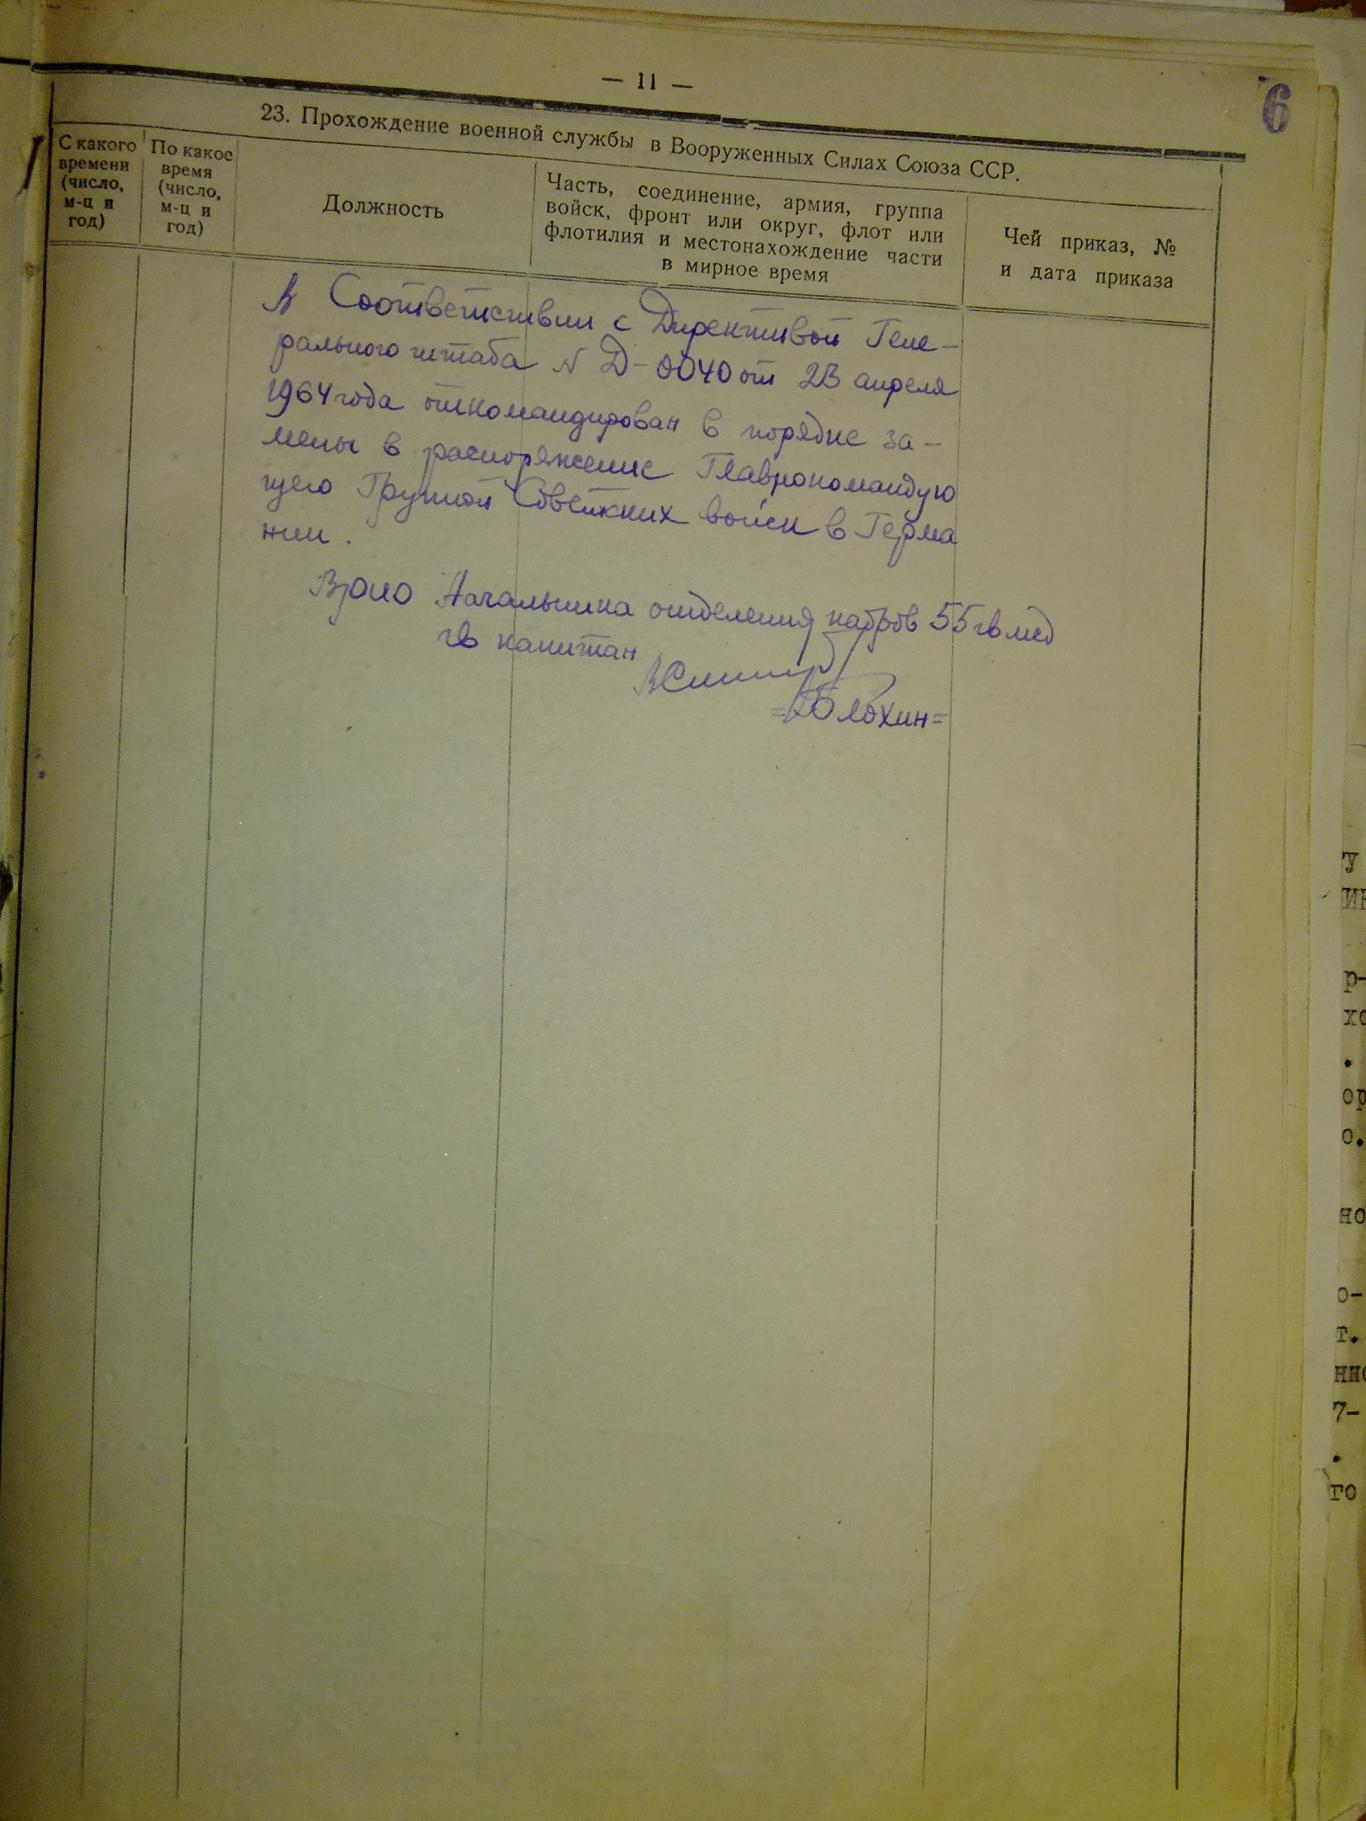 — 11 —
6
23. Прохождение военной службы в Вооруженных Силах Союза ССР.
С какого времени (число, м-ц и год)
По какое время (число, м-ц и год)
Должность
Часть, соединение, армия, группа
войск, фронт или округ, флот или
флотилия и местонахождение части
в мирное время
Чей приказ, №
и дата приказа
В Соответствии с Директивой Гене-
рального штаба N Д-0040 от 23 апреля
1964 года откомандирован в порядке за-
мены в распоряжение Главнокомандую
щего Группой Советских войск в Герма
нии.
Врио Начальника отделения кадров 55 гв мсд
гв капитан
=Блохин=
у
р-
хо
.
ор
о.
но
о-
т.
7-
.
го